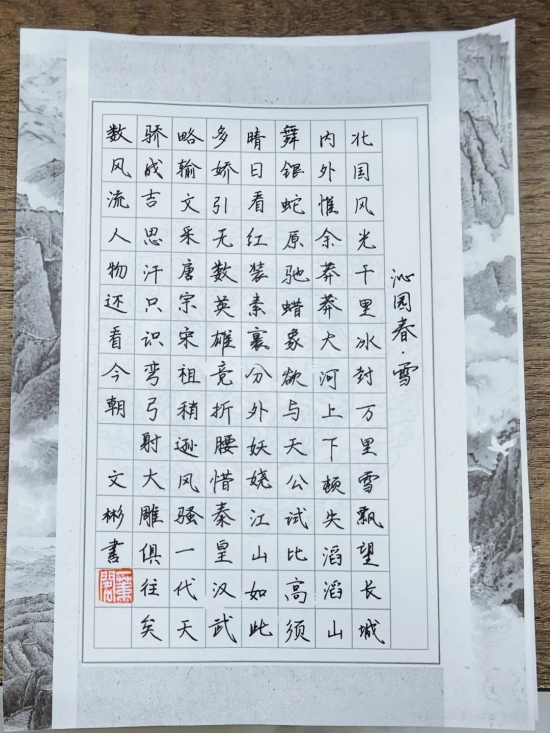 沁园春·雪
北国风光千里冰封万里雪飘望长城
内外惟余莽莽大河上下顿失滔滔山
舞银蛇原驰蜡象欲与天公试比高须
晴日看红装素裹分外妖娆江山如此
多娇引无数英雄竞折腰惜秦皇汉武
略输文采唐宗宋祖稍逊风骚一代天
骄成吉思汗只识弯弓射大雕俱往矣
数风流人物还看今朝 文彬书